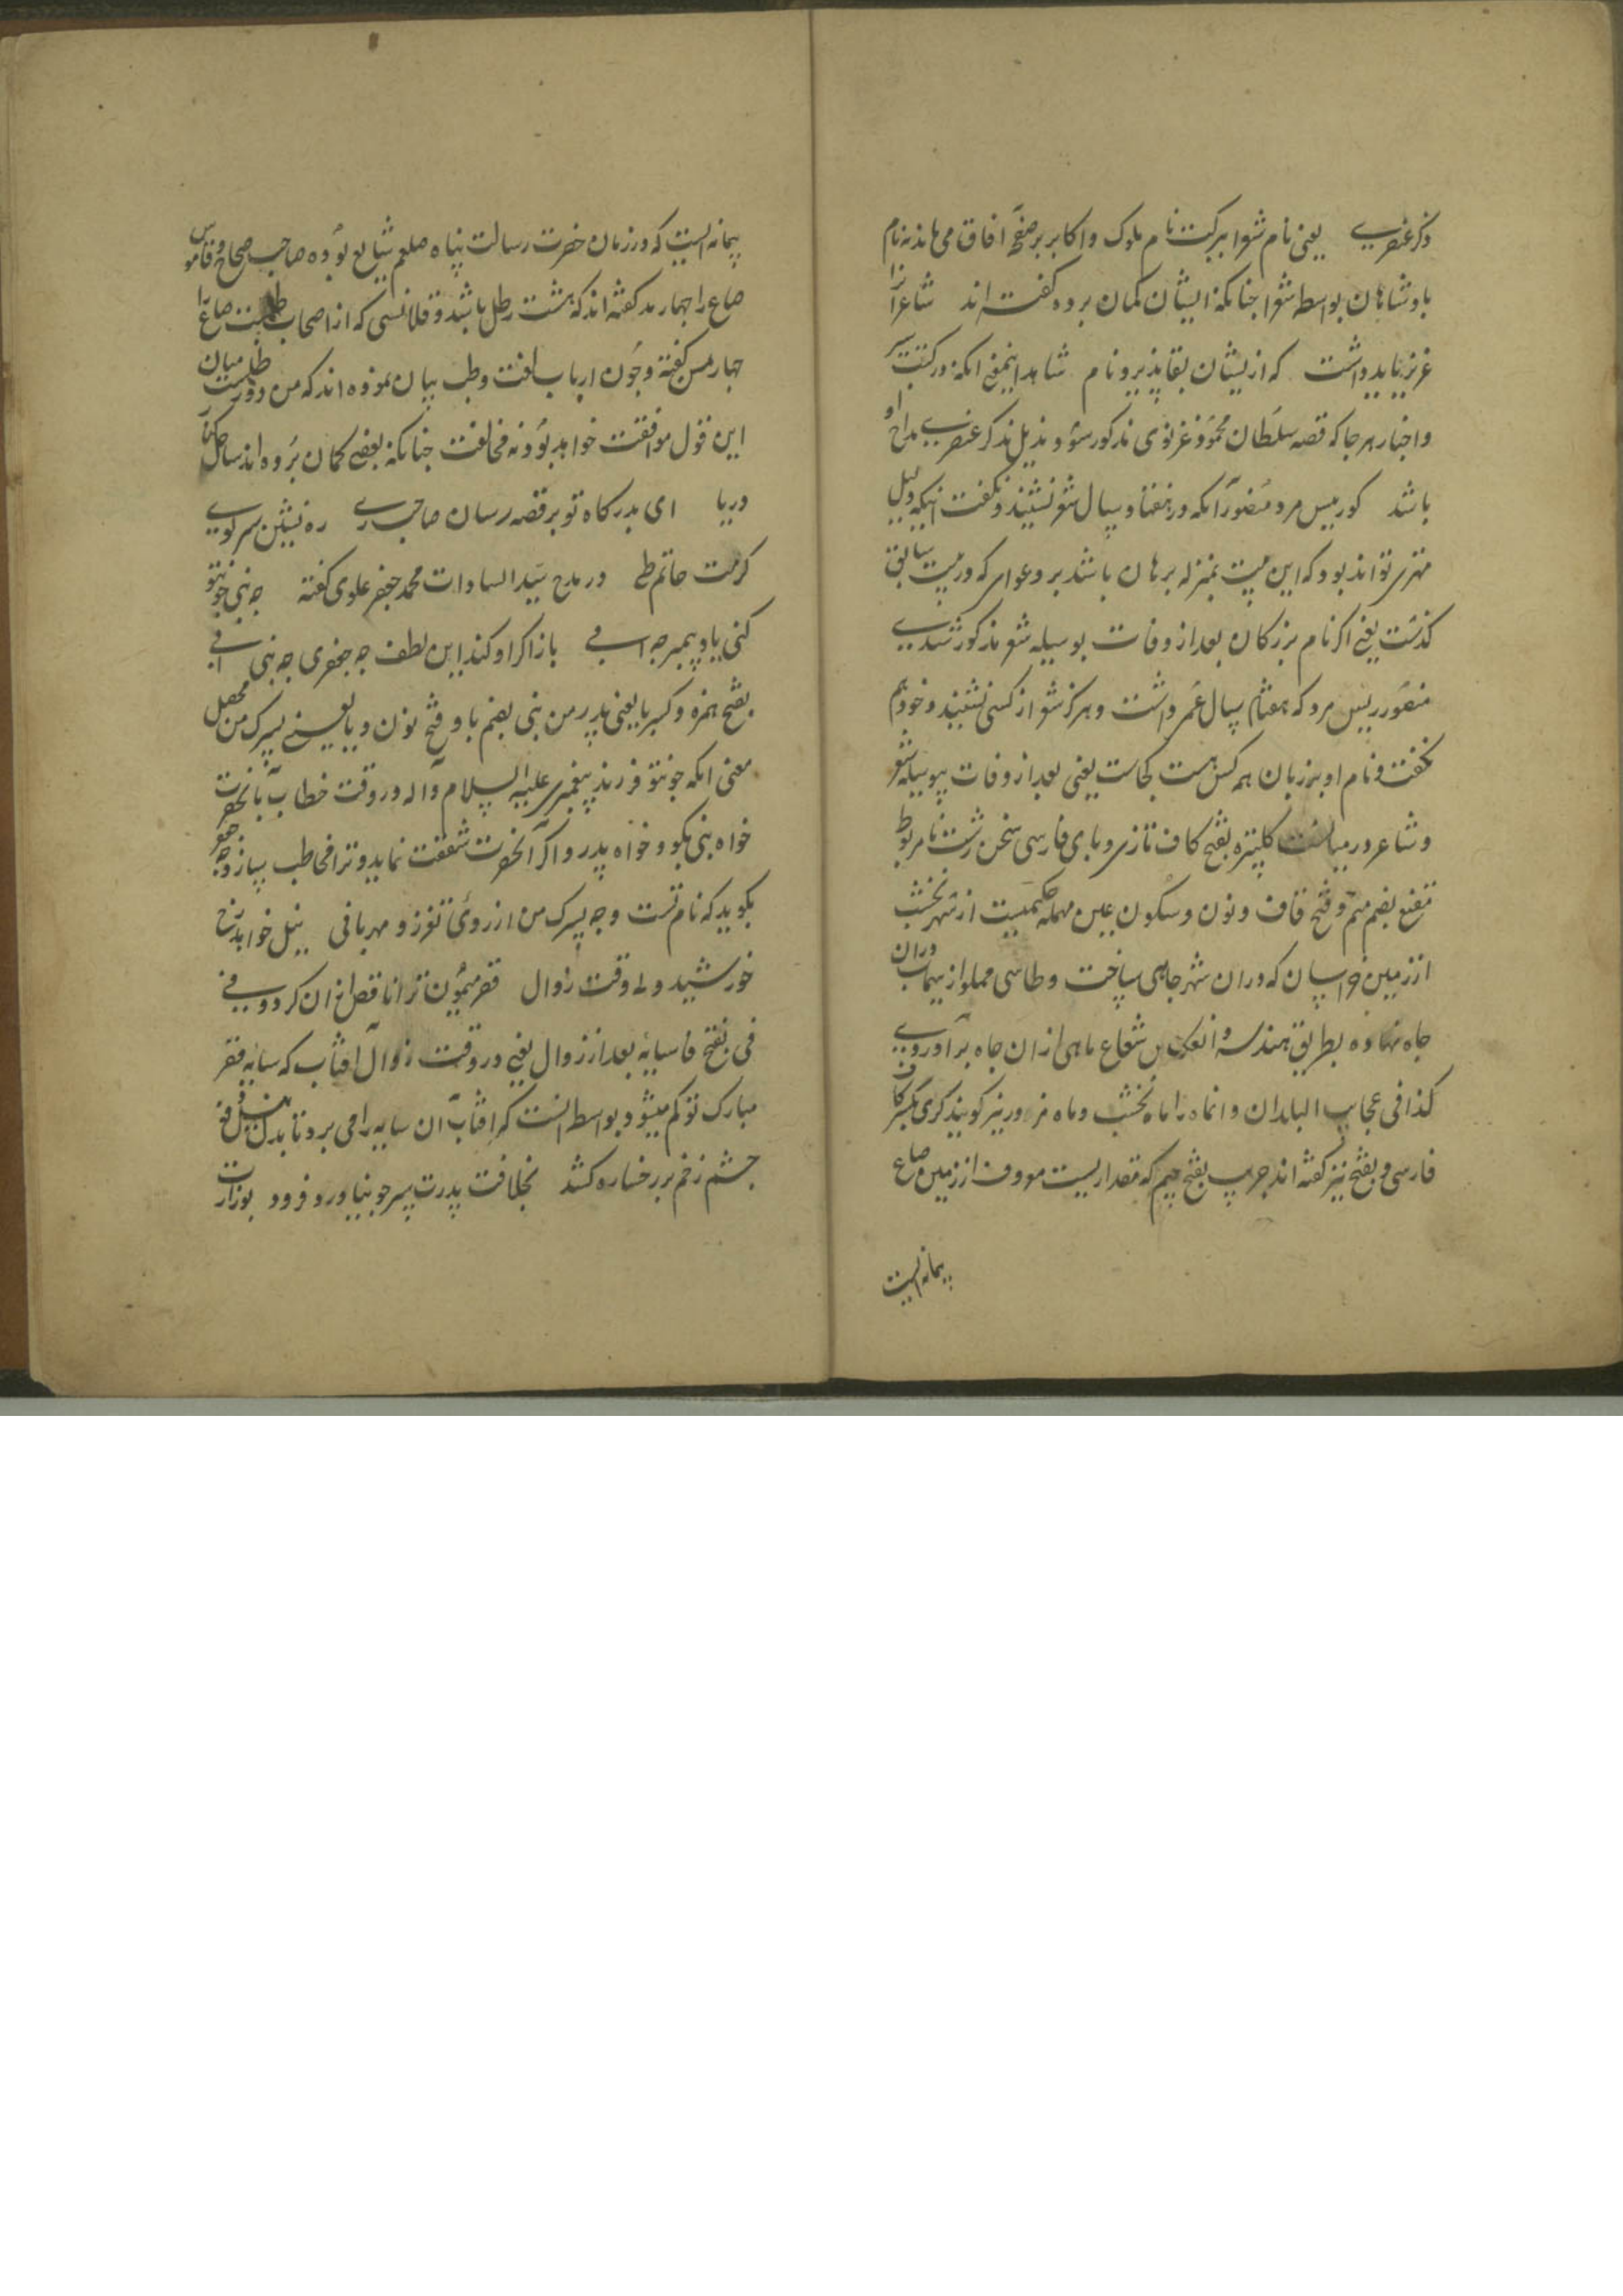 ذکر عنصری یعنی نام شعرا ببرکت نام ملوک و اکابر بر صفحهٔ افاق می ماند نه نام
پادشاهان بواسطه شعرا جنانکه ایشان کمان برده کفته اند شاعرانرا
عزیز باید داشت که ازیشان بقا پذیرد نام شاهد اینمعنی انکه در کتب سیر
و اخبار هر جا که قصه سلطان محمود غزنوی مذکور شود بذیل ذکر عنصری مداح او
باشد کو ربیس مرد منصور آنکه در هفتاد سال شعر نشنید و نکفت اینکه دلیل
مهتری تواند بود که این بیت بمنزله برهان باشد بر دعوای که در بیت سابق
کذشت یعنی اکر نام بزرکان بعد از وفات بوسیله شعر مذکور شدی
منصور ربیس مرد که هفتاد سال عمر داشت و هرکز شعر از کسی نشنید و خود هم
نکفت و نام او بر زبان همه کس هست کجاست یعنی بعد از وفات بوسیله شعر
و شاعر در میانست کلپتره بفتح کاف تازی و بای فارسی سخن زشت نامربوط
مقنع بضم میم و فتح قاف و نون و سکون عین مهمله حکیمیست از شهر نخشب
از زمین خراسان که دران شهر جاهی ساخت و طاسی مملو از سیماب دران
جاه نهاده بطریق هندسه و انعکاس شعاع ماهی ازان جاه بر آوردی
کذا فی عجایب البلدان و انماه را ماه نخشب و ماه مزور نیز کویند کری بکسر کاف
فارسی و بفتح نیز کفته اند جریب بفتح جیم که مقداریست معروف از زمین صاع
پیمانه ایست
پیمانه ایست که در زمان حضرت رسالت پناه صلعم شایع بوده صاحب صحاح و قاموس
صاع را جهار مد کفته اند که هشت رطل باشد و قلانسی که از اصحاب طبست صاع را
جهار من کفته و جون ارباب لغت و طب بیان نموده اند که من دو رطلست میان
این قول موافقت خواهد بود نه مخالفت جنانکه بعضی کمان برده اند ساحل کنار
دریا ای بدرکاه تو بر قصه رسان صاحب ری ره نشین سر کوی
کرمت حاتم طی در مدح سید السادات محمد جعفر علوی کفته جه نبی جونتو
کنی یاد پیمبر جه ابی باز اکر او کند این لطف جه جعفری جه نبی ابی
بفتح همزه و کسر با یعنی پدر من بنی بضم با و فتح نون و یا یعنی پسرک من محصل
معنی انکه جونتو فرزند پیغمبری علیه السلام و اله در وقت خطاب بانحضرت
خواه نبی بکو و خواه پدر و اکر آنحضرت شفقت نماید و ترا مخاطب سازد جه جعفر
بکوید که نام تست و جه پسرک من از روی تعزز و مهربانی نیل خواهد رخ
خورشید ولی وقت زوال قصر میمون ترا ناقص ازان کردد فی
فی بفتح فا سایه بعد از زوال یعنی در وقت زوال افتاب که سایه قصر
مبارک تو کم میشود بواسطه انست که افتاب آن سایه را می برد تا بدل نیل دفع
جشم زخم بر رخساره کشد بخلافت پدرت سر جو نیاورد فرود بوزارت